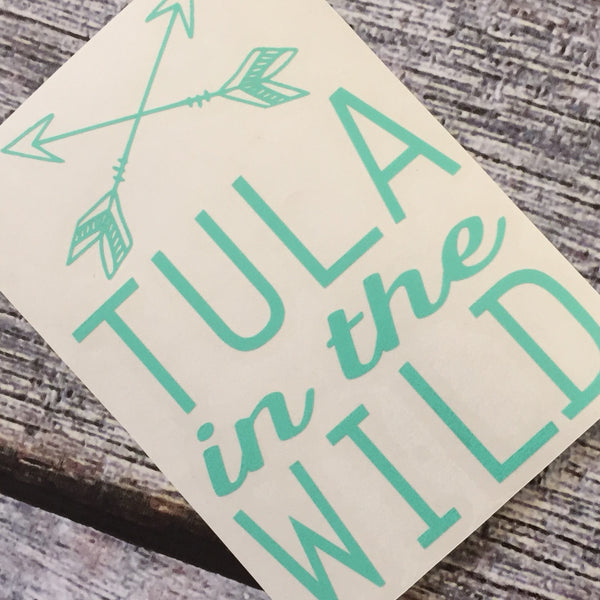 TULA
in the
WILD